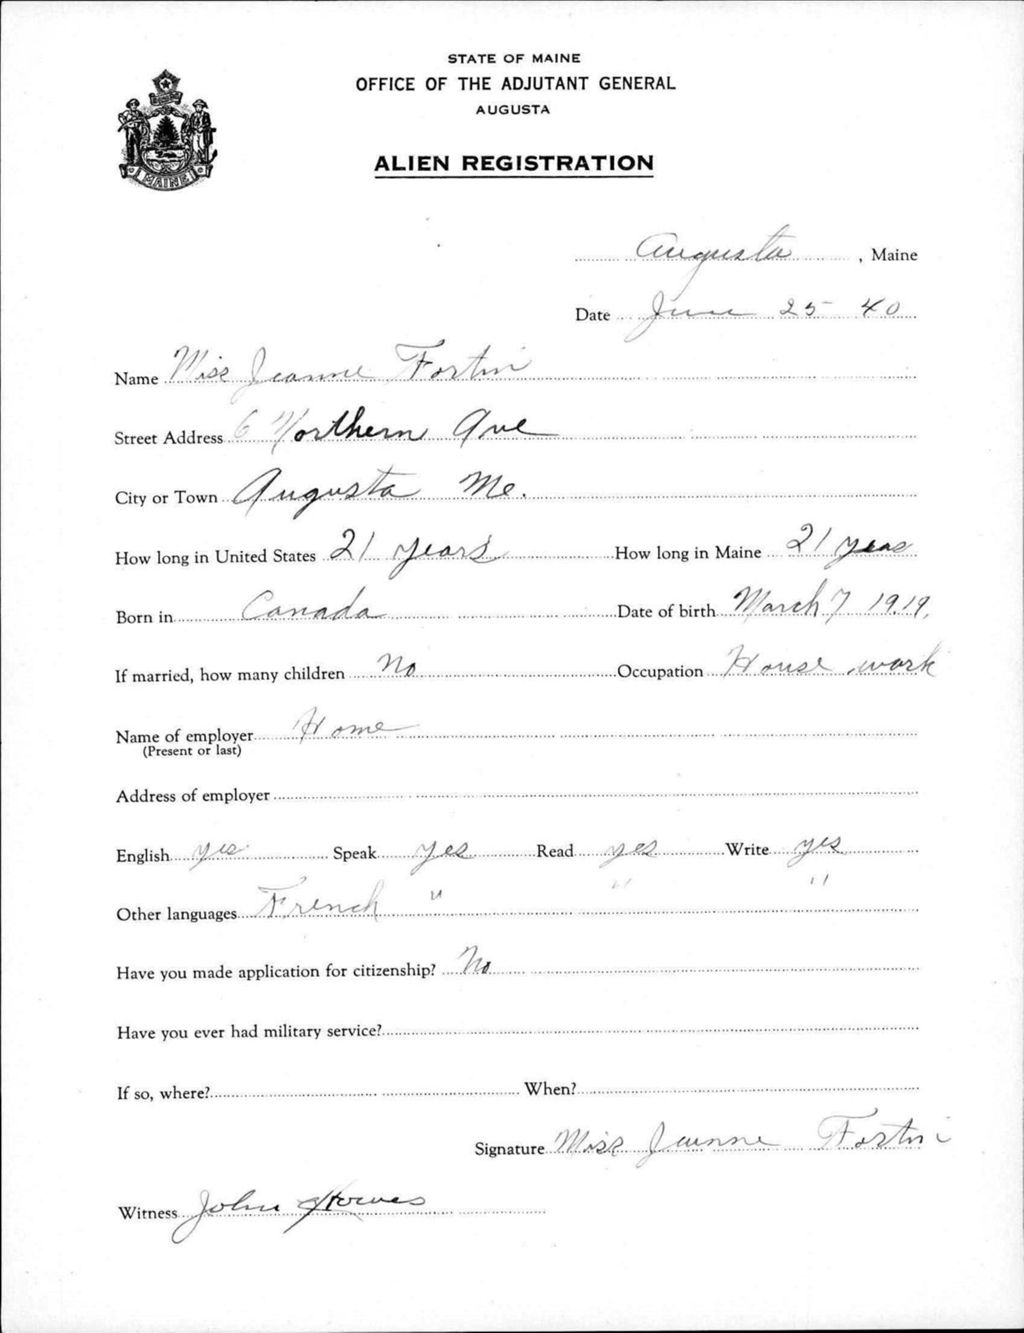 STATE OF MAINE
OFFICE OF THE ADJUTANT GENERAL
AUGUSTA
ALIEN REGISTRATION
MAINE
Augusta, Maine
Date June 25 40
Name Miss Jeanne Fortin
Street Address 6 Northern Ave
City or Town Augusta Me.
How long in United States 21 years How long in Maine 21 years
Born in Canada Date of birth March 7 1919,
If married, how many children No Occupation House work
Name of employer Home
(Present or last)
Address of employer
English yes Speak yes Read yes Write yes
Other languages French " " "
Have you made application for citizenship? No
Have you ever had military service?
If so, where? When?
Signature Miss Jeanne Fortin
Witness John Howes